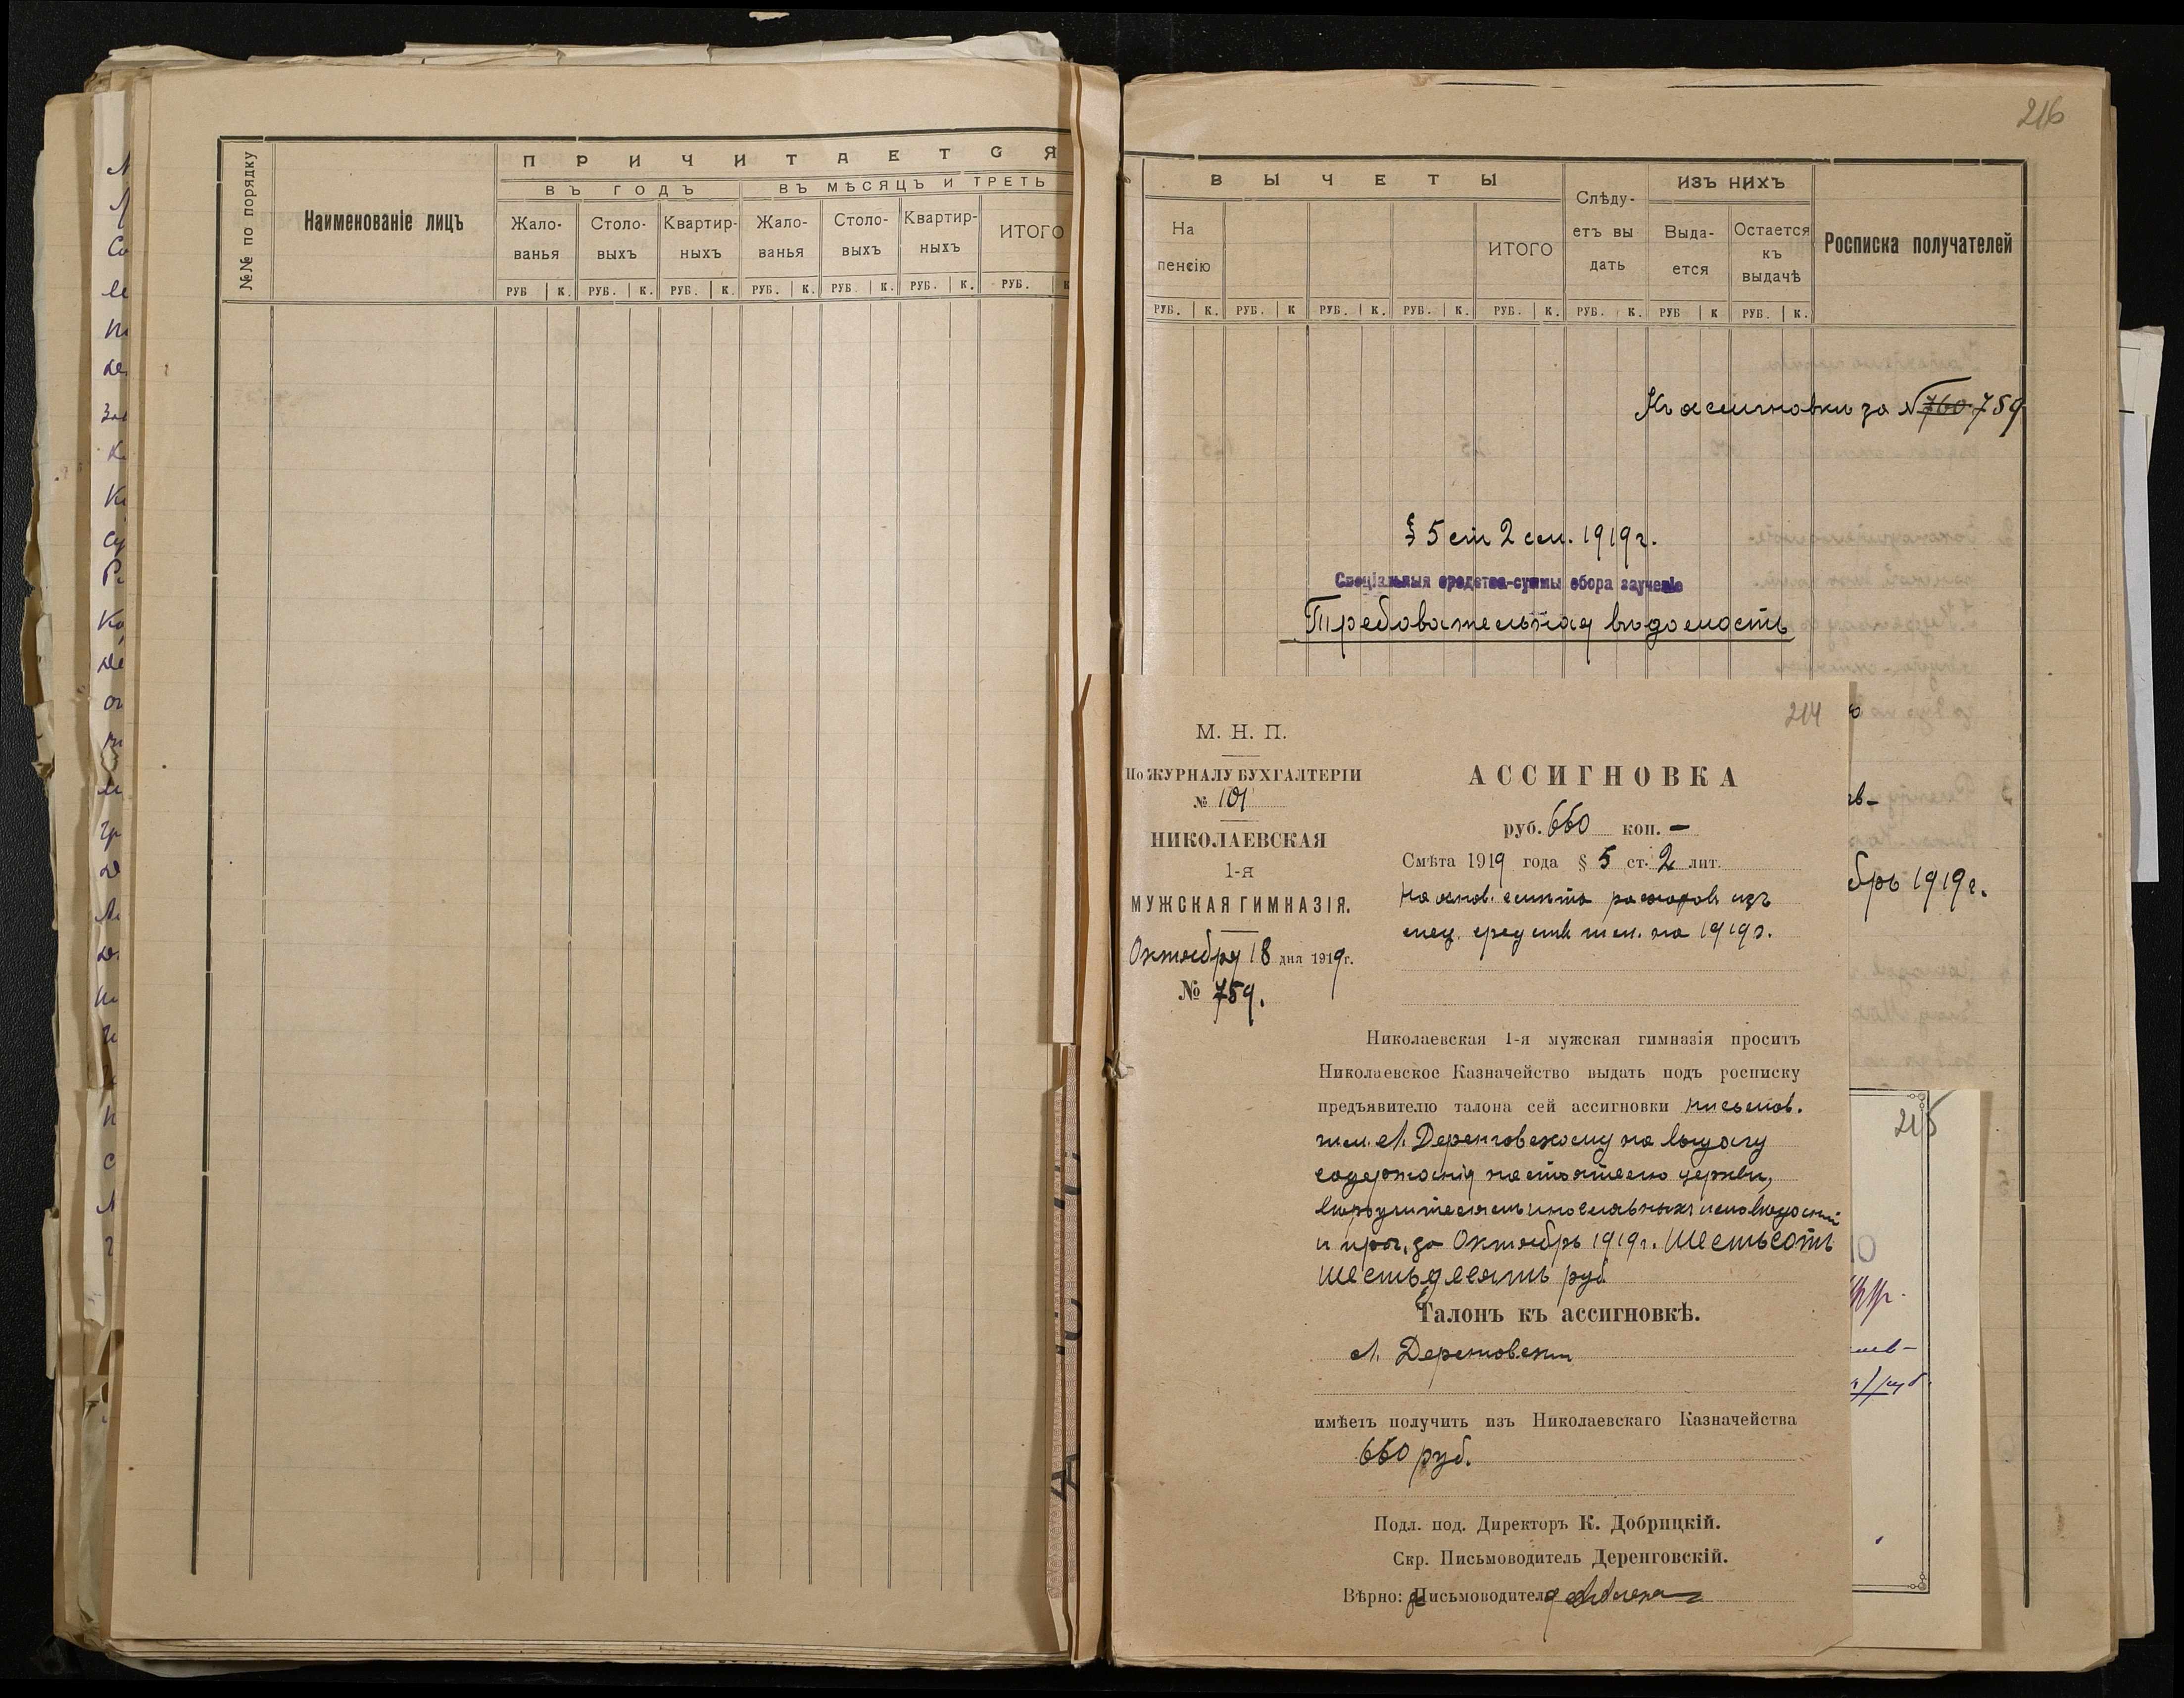 №№ по порядку
Наименованіе лицъ
ПРИЧИТАЕТСЯ
ВЪ ГОДЪ
ВЪ МѢСЯЦЪ И ТРЕТЬ
Жало-
ванья
Столо-
выхъ
Квартир-
ныхъ
Жало-
ванья
Столо-
выхъ
Квартир-
ныхъ
ИТОГО
РУБ К. РУБ. К. РУБ. К. РУБ. К. РУБ. К. РУБ. К. РУБ.
216
ВЫЧЕТЫ
На
пенсію
ИТОГО
Слѣду-
етъ вы
дать
ИЗЪ НИХЪ
Выда-
ется
Остается
къ
выдачѣ
Росписка получателей
РУБ. К. РУБ. К РУБ. К. РУБ. К. РУБ. К. РУБ. К. РУБ К РУБ. К.
Къ ассигновки за № 760 759
§ 5 ст 2 см. 1919 г.
Спеціальныя средства-суммы сбора за ученіе
Требовательная вѣдомость
214
М. Н. П.
По ЖУРНАЛУ БУХГАЛТЕРІИ
№ 101
НИКОЛАЕВСКАЯ
1-я
МУЖСКАЯ ГИМНАЗІЯ.
Октября 18 дня 1919 г.
№ 759.
АССИГНОВКА
руб. 660 коп. —
Смѣта 1919 года § 5 ст. 2 лит.
на основ. смѣты расходов изъ
спец. средств гим. на 1919 г.
Николаевская 1-я мужская гимназія проситъ
Николаевское Казначейство выдать подъ росписку
предъявителю талона сей ассигновки письмов.
гим. Л. Деренговскому на выдачу
содержанія настоятелю церкви,
вѣроучителямъ инославныхъ исповѣданій
и проч. за Октябрь 1919 г. Шестьсотъ
шестьдесятъ руб
Талонъ къ ассигновкѣ.
Л. Деренговскій
имѣетъ получить изъ Николаевскаго Казначейства
660 руб.
Подл. под. Директоръ К. Добрицкій.
Скр. Письмоводитель Деренговскій.
Вѣрно: Письмоводителя
брь 1919 г.
215